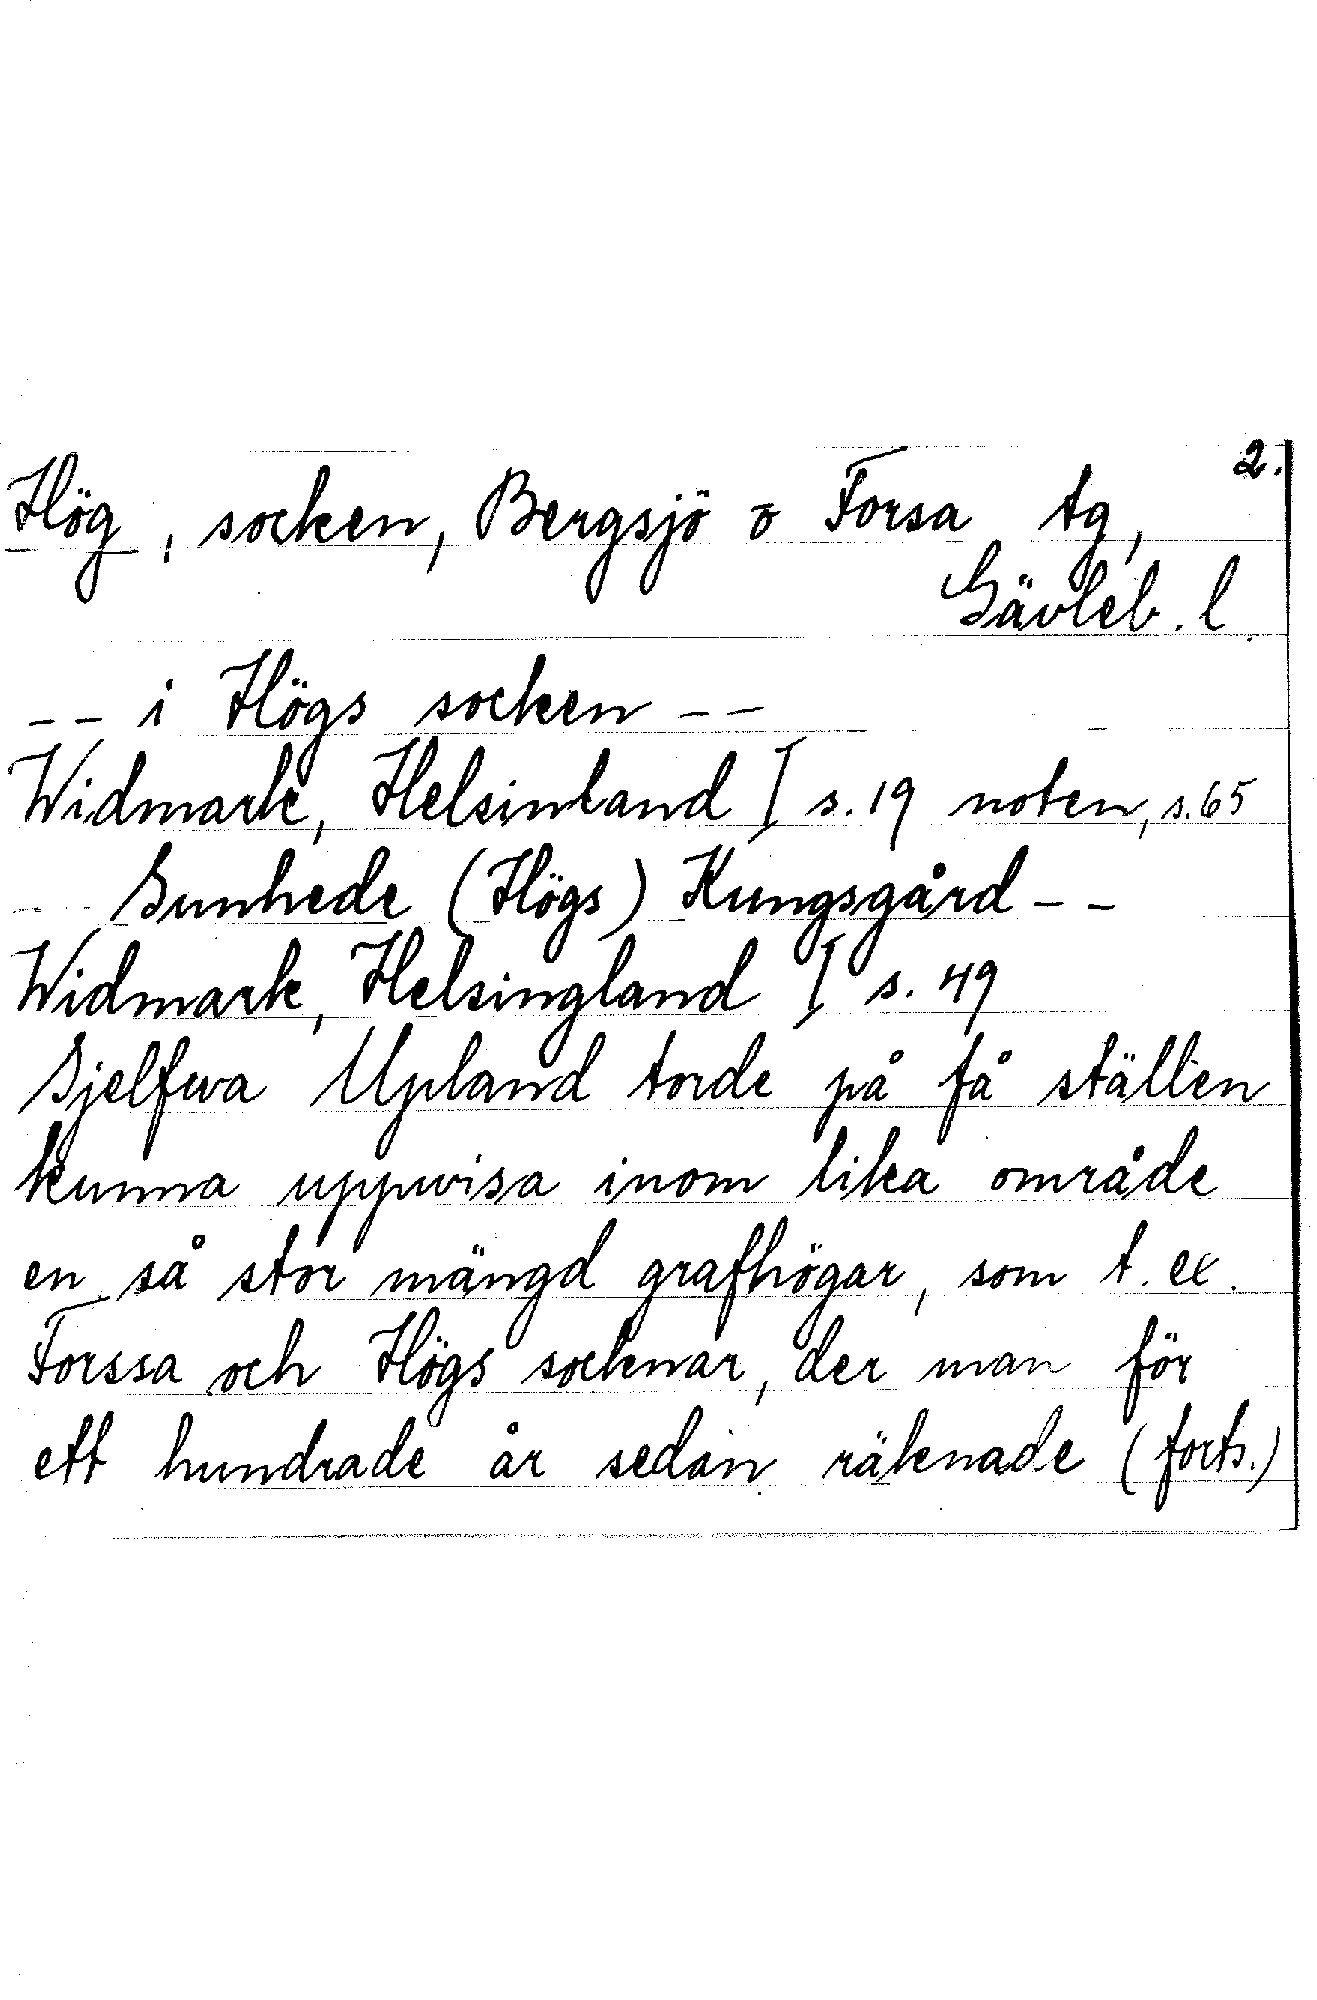 2.
Hög, socken, Bergsjö o Forsa tg,
Gävleb. l.
-- i Högs socken --
Widmark, Helsinland I s. 19 noten, s. 65
-- Sunhede (Högs) Kungsgård --
Widmark, Helsingland I s. 49
Sjelfwa Upland torde på få ställen
kunna uppwisa inom lika område
en så stor mängd grafhögar, som t. ex.
Forssa och Högs socknar, der man för
ett hundrade år sedan räknade (forts.)